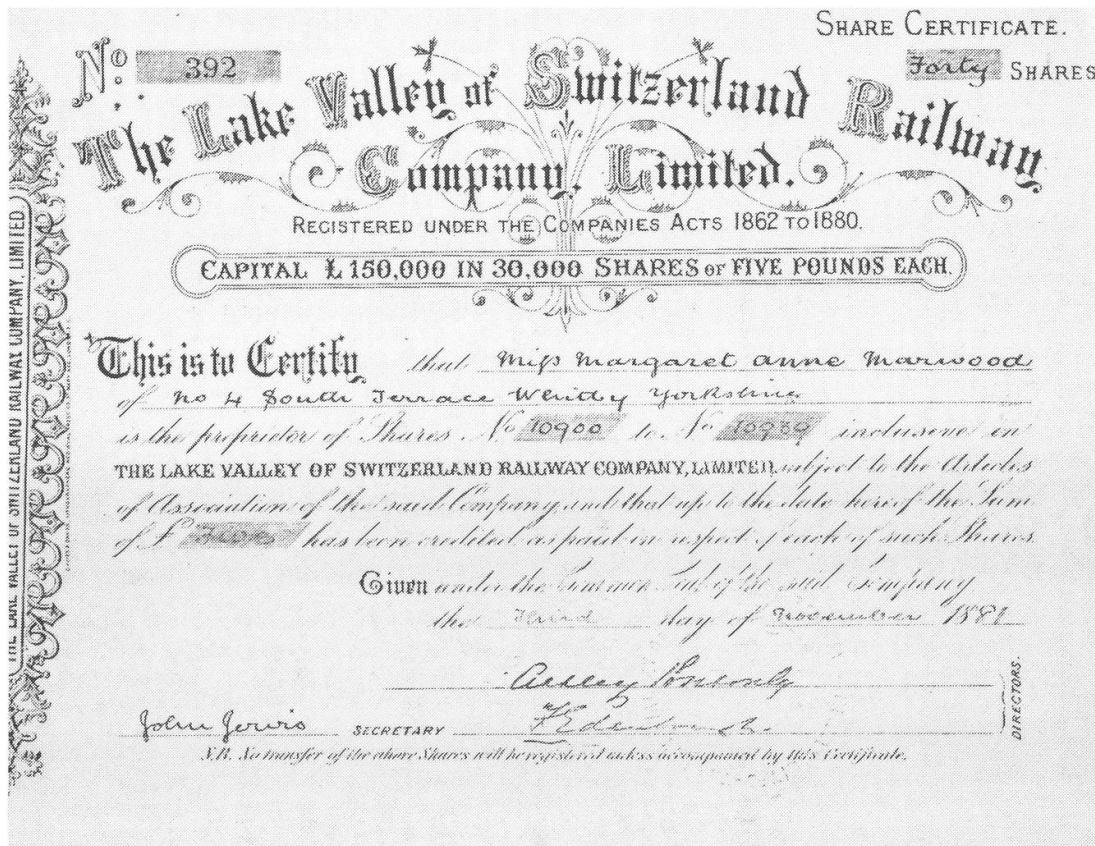 SHARE CERTIFICATE.
No. 392
Forty SHARES
The Lake Valley of Switzerland Railway
Company, Limited.
REGISTERED UNDER THE COMPANIES ACTS 1862 TO 1880.
CAPITAL £150,000 IN 30,000 SHARES OF FIVE POUNDS EACH.
This is to Certify that Miss Margaret Anne Marwood
of No 4 South Terrace Whitby Yorkshire
is the proprietor of Shares No 10900 to No 10939 inclusive in
THE LAKE VALLEY OF SWITZERLAND RAILWAY COMPANY, LIMITED, subject to the Articles
of Association of the said Company and that up to the date hereof the Sum
of £ has been credited as paid in respect of each of such Shares
Given under the Common Seal of the said Company
the Third day of November 1881
John Jervis SECRETARY
DIRECTORS.
N.B. No transfer of the above Shares will be registered unless accompanied by this Certificate.
THE LAKE VALLEY OF SWITZERLAND RAILWAY COMPANY, LIMITED